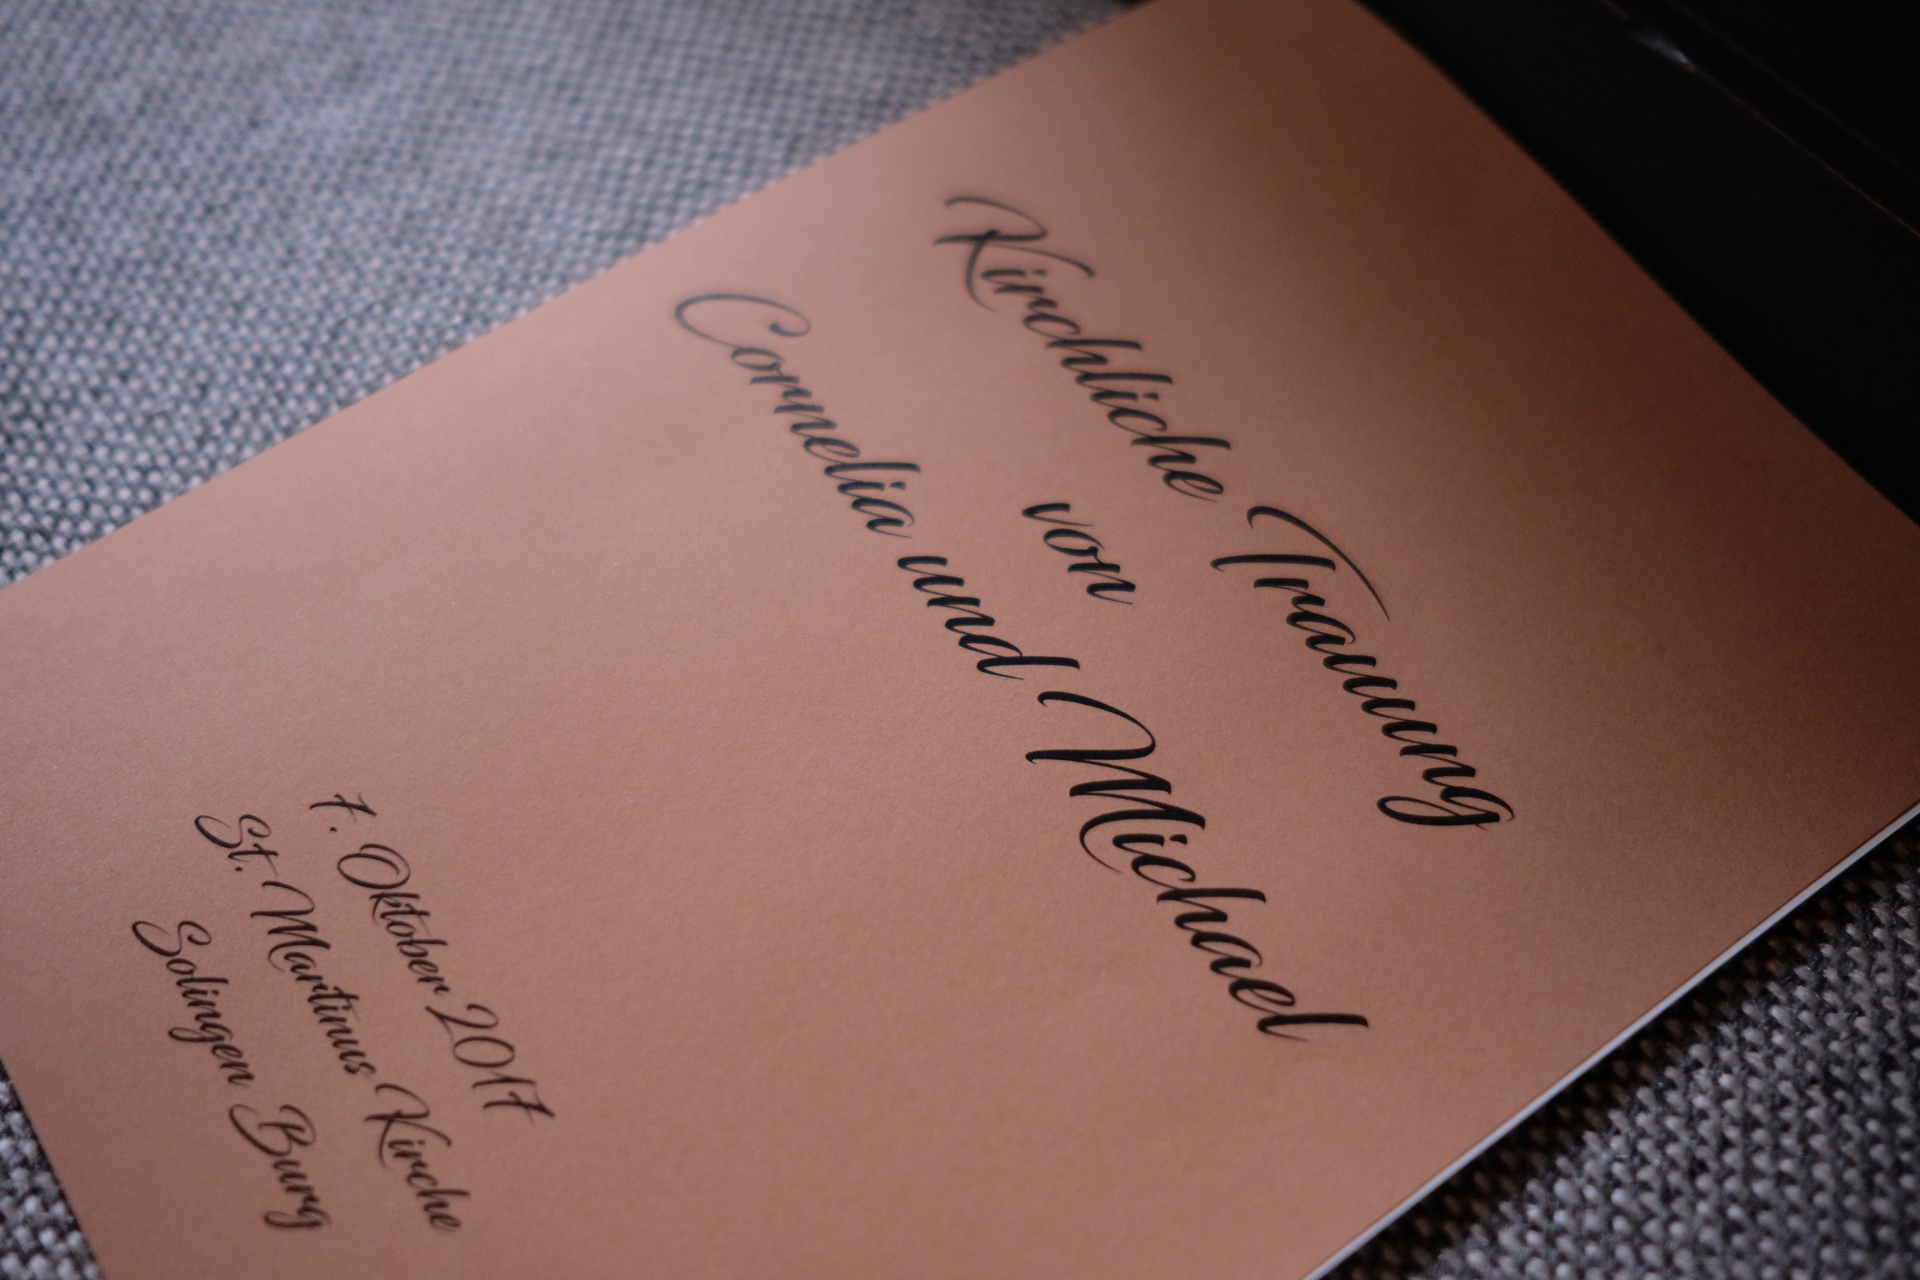 Kirchliche Trauung
von
Cornelia und Michael
7. Oktober 2017
St. Martinus Kirche
Solingen Burg